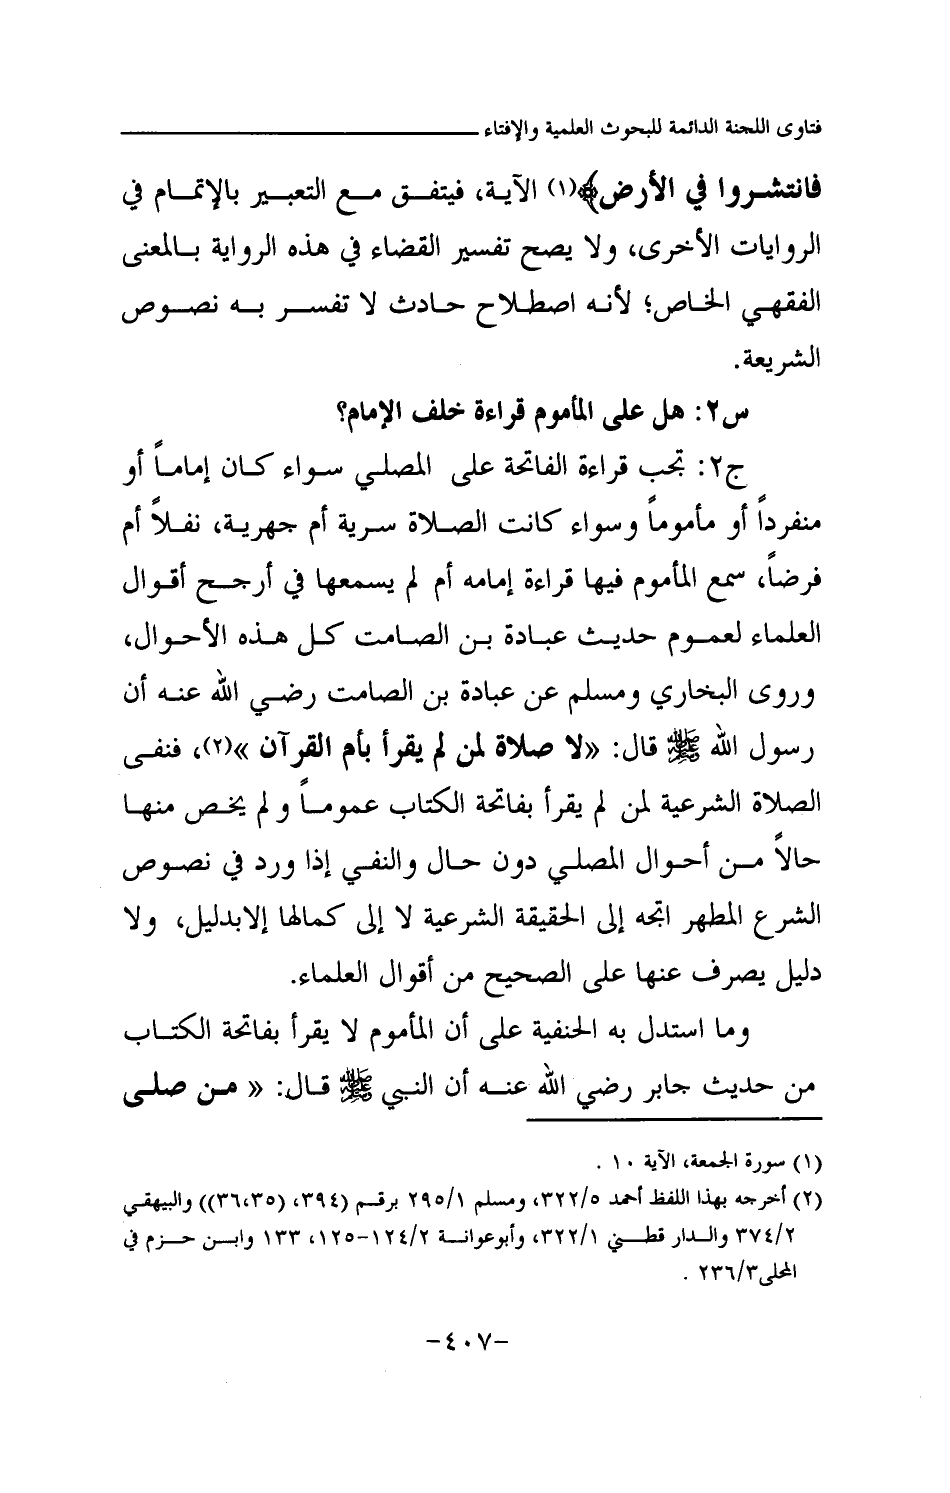 فتاوى اللجنة الدائمة للبحوث العلمية والإفتاء
فانتشروا في الأرض﴾(١) الآية، فيتفق مع التعبير بالإتمام في
الروايات الأخرى، ولا يصح تفسير القضاء في هذه الرواية بالمعنى
الفقهي الخاص؛ لأنه اصطلاح حادث لا تفسر به نصوص
الشريعة.
س٢: هل على المأموم قراءة خلف الإمام؟
ج٢: تجب قراءة الفاتحة على المصلي سواء كان إماماً أو
منفرداً أو مأموماً وسواء كانت الصلاة سرية أم جهرية، نفلاً أم
فرضاً، سمع المأموم فيها قراءة إمامه أم لم يسمعها في أرجح أقوال
العلماء لعموم حديث عبادة بن الصامت كل هذه الأحوال،
وروى البخاري ومسلم عن عبادة بن الصامت رضي الله عنه أن
رسول الله ﷺ قال: «لا صلاة لمن لم يقرأ بأم القرآن »(٢)، فنفى
الصلاة الشرعية لمن لم يقرأ بفاتحة الكتاب عموماً و لم يخص منها
حالاً من أحوال المصلي دون حال والنفي إذا ورد في نصوص
الشرع المطهر اتجه إلى الحقيقة الشرعية لا إلى كمالها إلابدليل، ولا
دليل يصرف عنها على الصحيح من أقوال العلماء.
وما استدل به الحنفية على أن المأموم لا يقرأ بفاتحة الكتاب
من حديث جابر رضي الله عنه أن النبي ﷺ قال: « من صلى
(١) سورة الجمعة، الآية ١٠ .
(٢) أخرجه بهذا اللفظ أحمد ٣٢٢/٥، ومسلم ٢٩٥/١ برقم (٣٩٤، (٣٦،٣٥)) والبيهقي
٣٧٤/٢ والدار قطني ٣٢٢/١، وأبوعوانة ١٢٤/٢-١٢٥، ١٣٣ وابن حزم في
المحلى٢٣٦/٣ .
-٤٠٧-